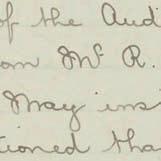 of the Aud
om Mr. R.
May ins
tioned tha